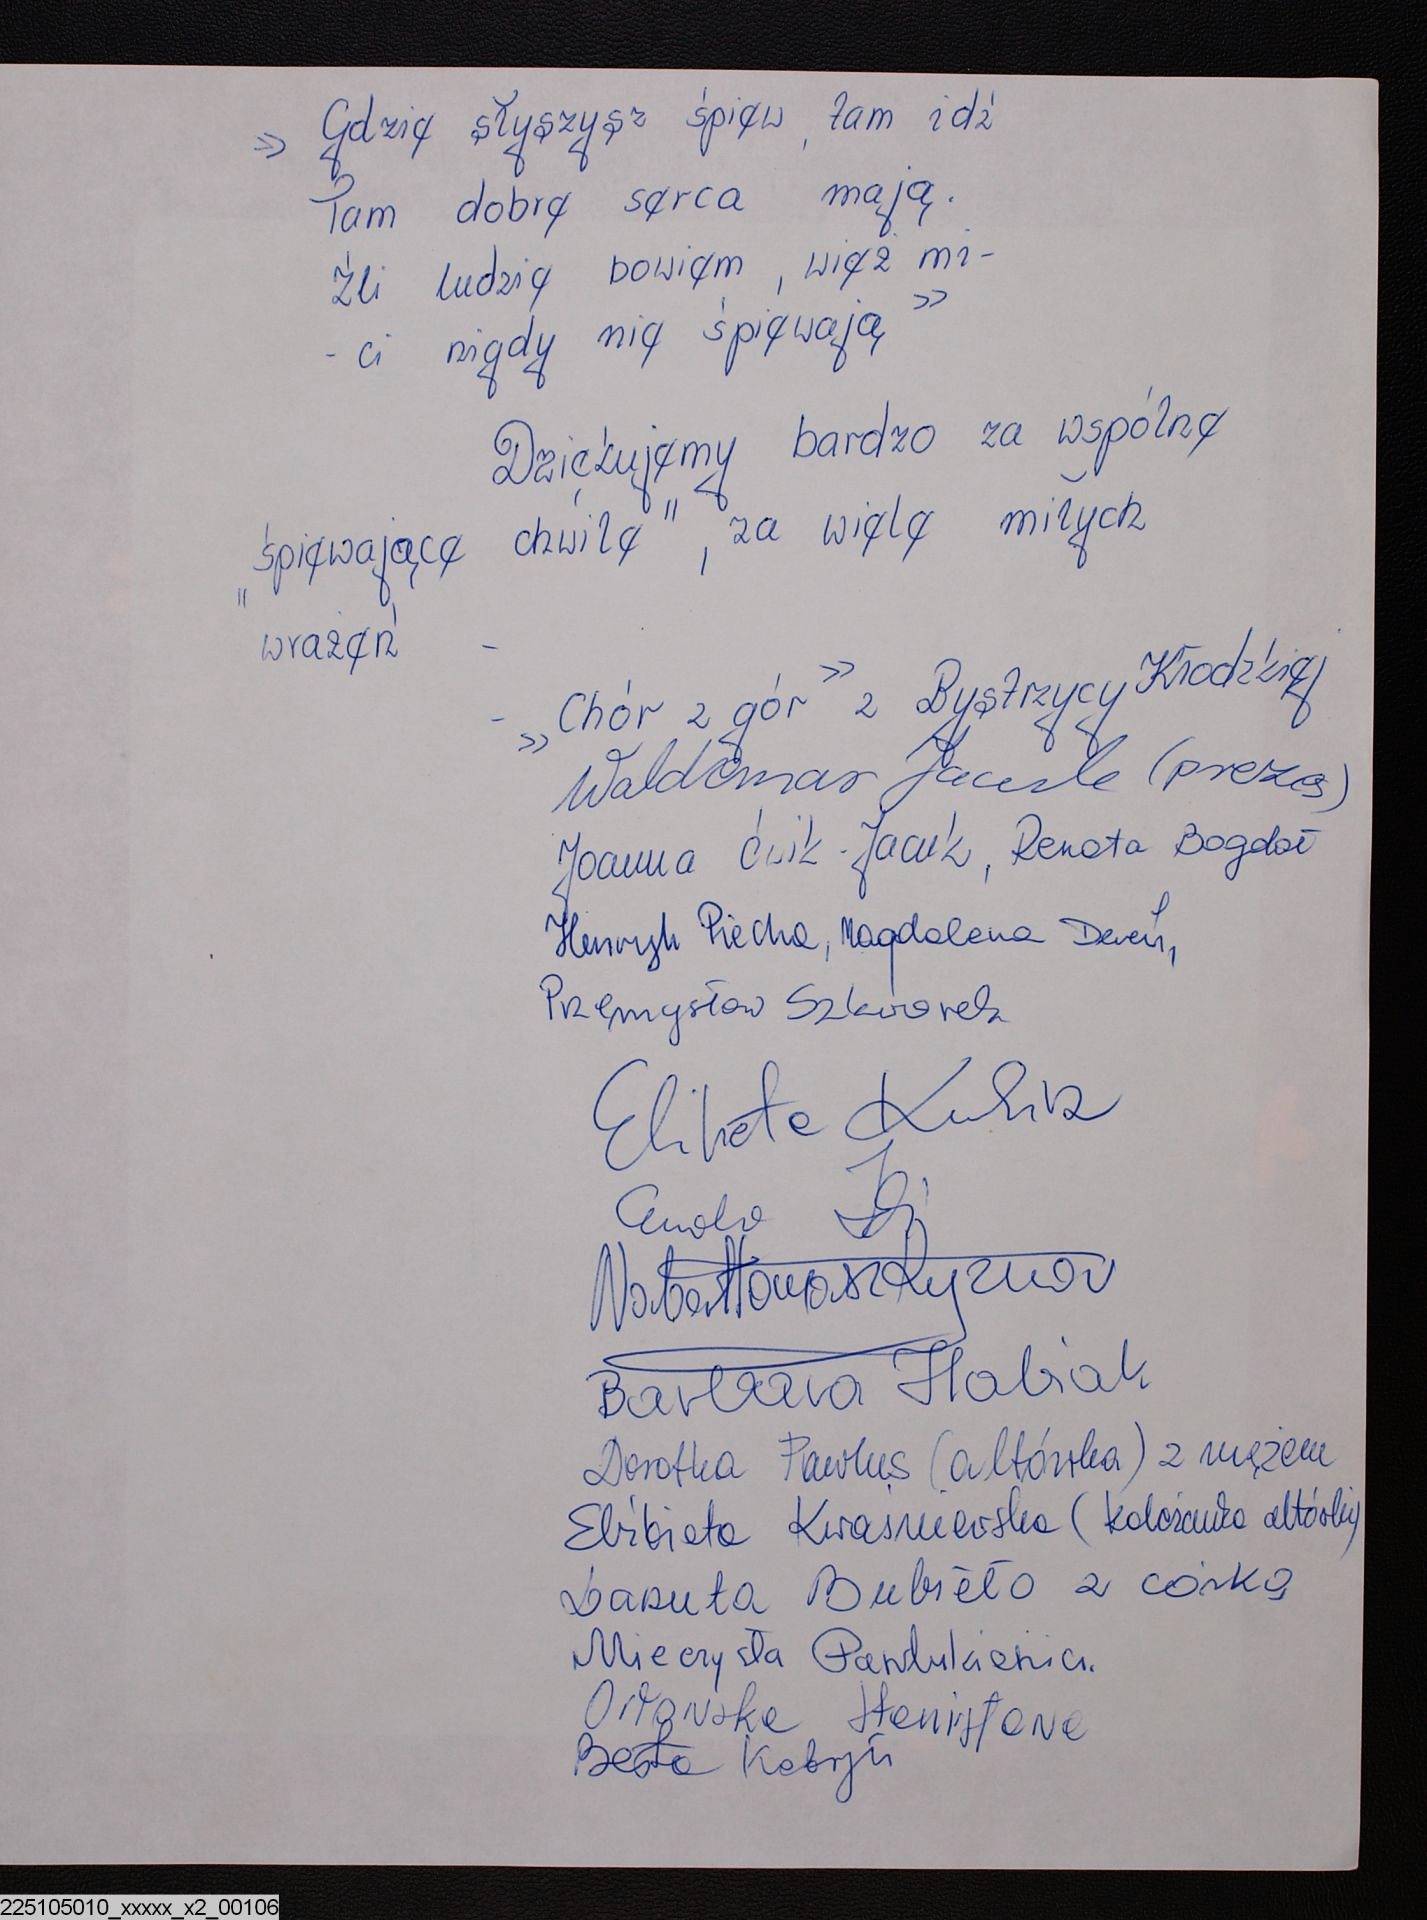 » Gdzie słyszysz śpiew, tam idź
Tam dobre serca mają.
Źli ludzie bowiem, wież mi-
- ci nigdy nie śpiewają »
Dziękujemy bardzo za wspólne
"śpiewające chwile", za wiele miłych
wrażeń -
- » Chór z gór » z Bystrzycy Kłodzkiej
Waldemar (prezes)
Joanna Ćwik-Jacuk, Renata Bogdał
Henryk Piecha, Magdalena Dereń,
Przemysław Szkworek
Elżbieta
Barbara Habiak
Dorotka Pawlus (altówka) z mężem
Elżbieta Kwaśniewska (koleżanka altówki)
Danuta Bubieło z córką
Mieczysła
Stanisława
Beata Kobryń
225105010_xxxxx_x2_00106